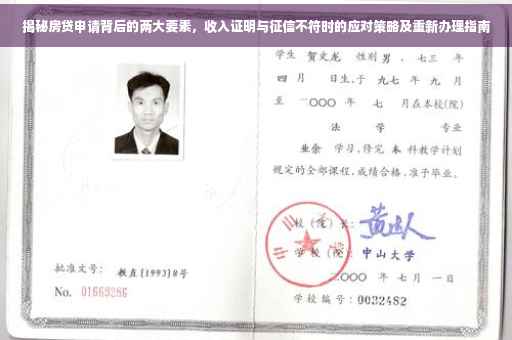 揭秘房贷申请背后的两大要素，收入证明与征信不符时的应对策略及重新办理指南
学生 贺文龙 性别 男，七三 年
四 月 日生，于 九七 年 九 月
至 二〇〇〇 年 七 月在本校(院)
法 学 专业
业余 学习，修完 本 科教学计划
规定的全部课程，成绩合格，准予毕业。
校（院）长：
学校（院）：中山大学
二〇〇〇 年 七 月 一 日
学校编号：0032482
批准文号：教直[1993]8号
No. 01669286
中山大学